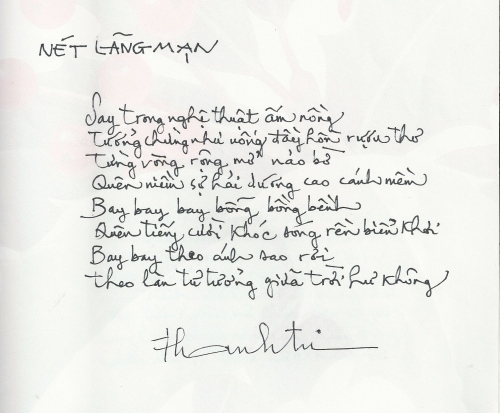 NÉT LÃNG MẠN
Say trong nghệ thuật ấm nồng
Tưởng chừng như uống đầy hồn rượu thơ
Từng vòng rộng mở não bờ
Quên niềm sợ hải dương cao cánh mềm
Bay bay bay bổng bồng bềnh
Quên tiếng cười khóc sóng rền biển khơi
Bay bay theo ánh sao rơi
theo làn tư tưởng giữa trời hư không